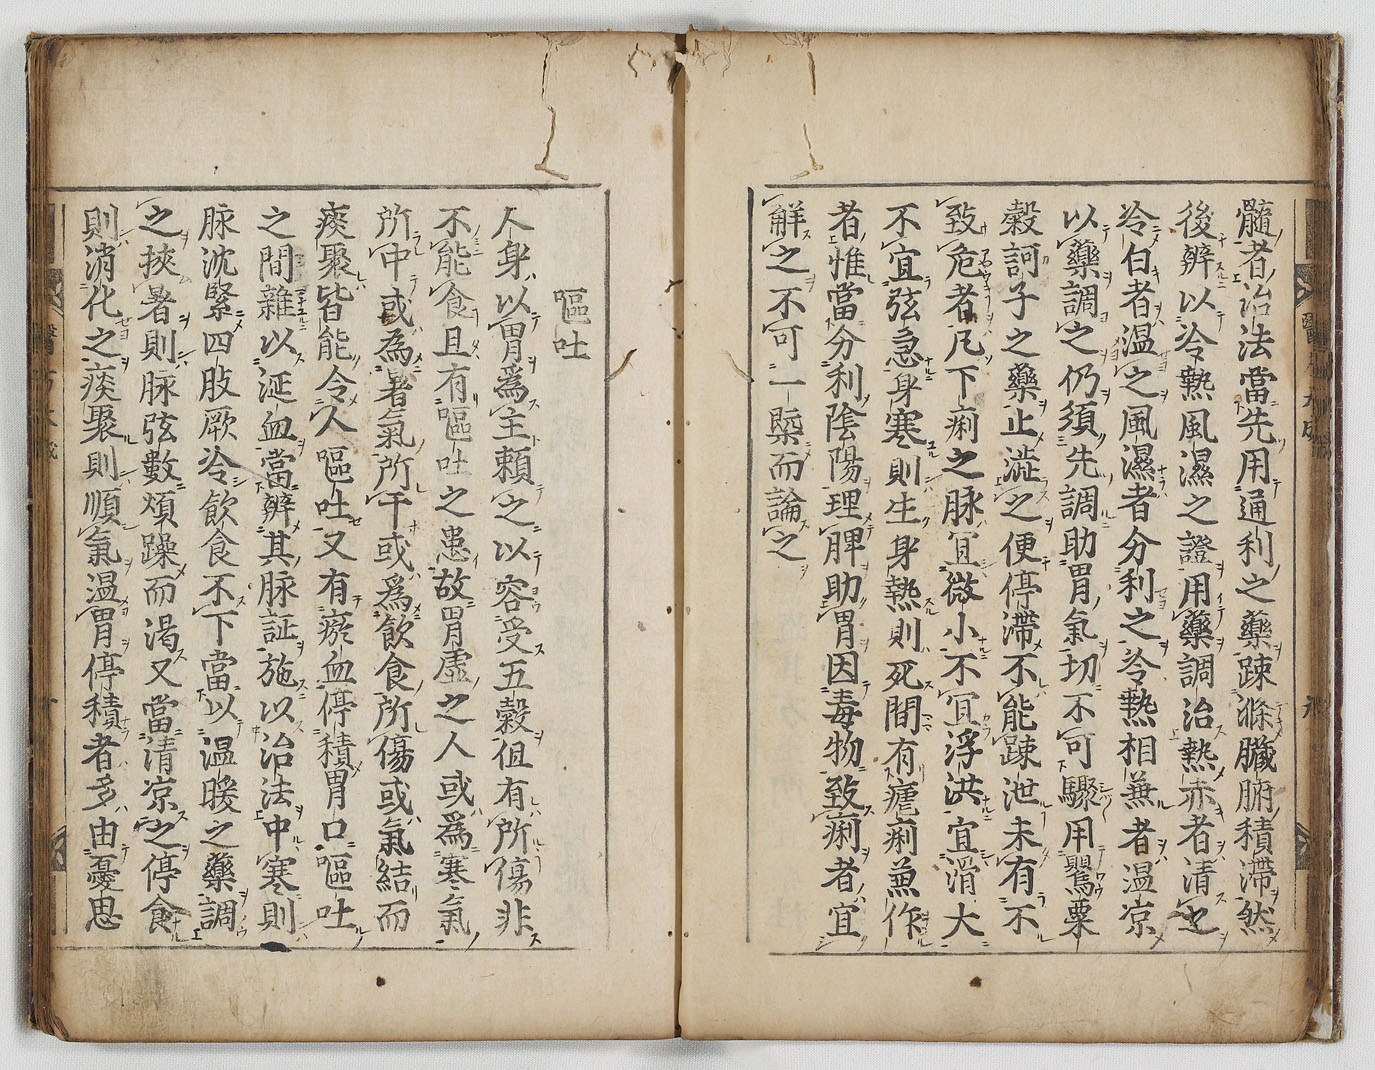 髓者治法當先用通利之藥踈滌臓腑積滯然
後辨以冷熱風濕之證用藥調治熱赤者清之
冷白者温之風濕者分利之冷熱相兼者温凉
以藥調之仍須先調助胃氣切不可驟用罌粟
穀訶子之藥止澁之便停滯不能踈泄未有不
致危者凡下痢之脉宜微小不宜浮洪宜滑大
不宜弦急身寒則生身熱則死間有瘧痢兼作
者惟當分利陰陽理脾助胃因毒物致痢者宜
解之不可一槩而論之
嘔吐
人身以胃為主頼之以容受五穀但有所傷非
不能食且有嘔吐之患故胃虚之人或為寒氣
所中或為暑氣所干或為飲食所傷或氣結而
痰聚皆能令人嘔吐又有瘀血停積胃口嘔吐
之間雜以涎血當辨其脉証施以治法中寒則
脉沈緊四肢厥冷飲食不下當以温暖之藥調
之挾暑則脉弦數煩躁而渴又當清凉之停食
則消化之痰聚則順氣温胃停積者多由憂思